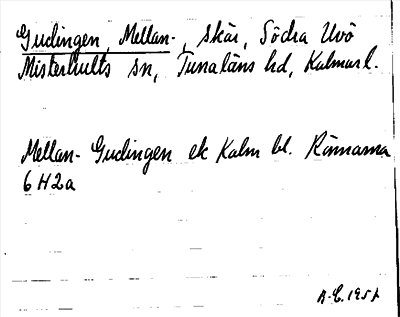 Gudingen, Mellan-, skär, Södra Uvö
Misterhults sn, Tunaläns hd, Kalmar l.
Mellan-Gudingen ek Kalm bl. Rännarna
6H2a
A.E. 1957